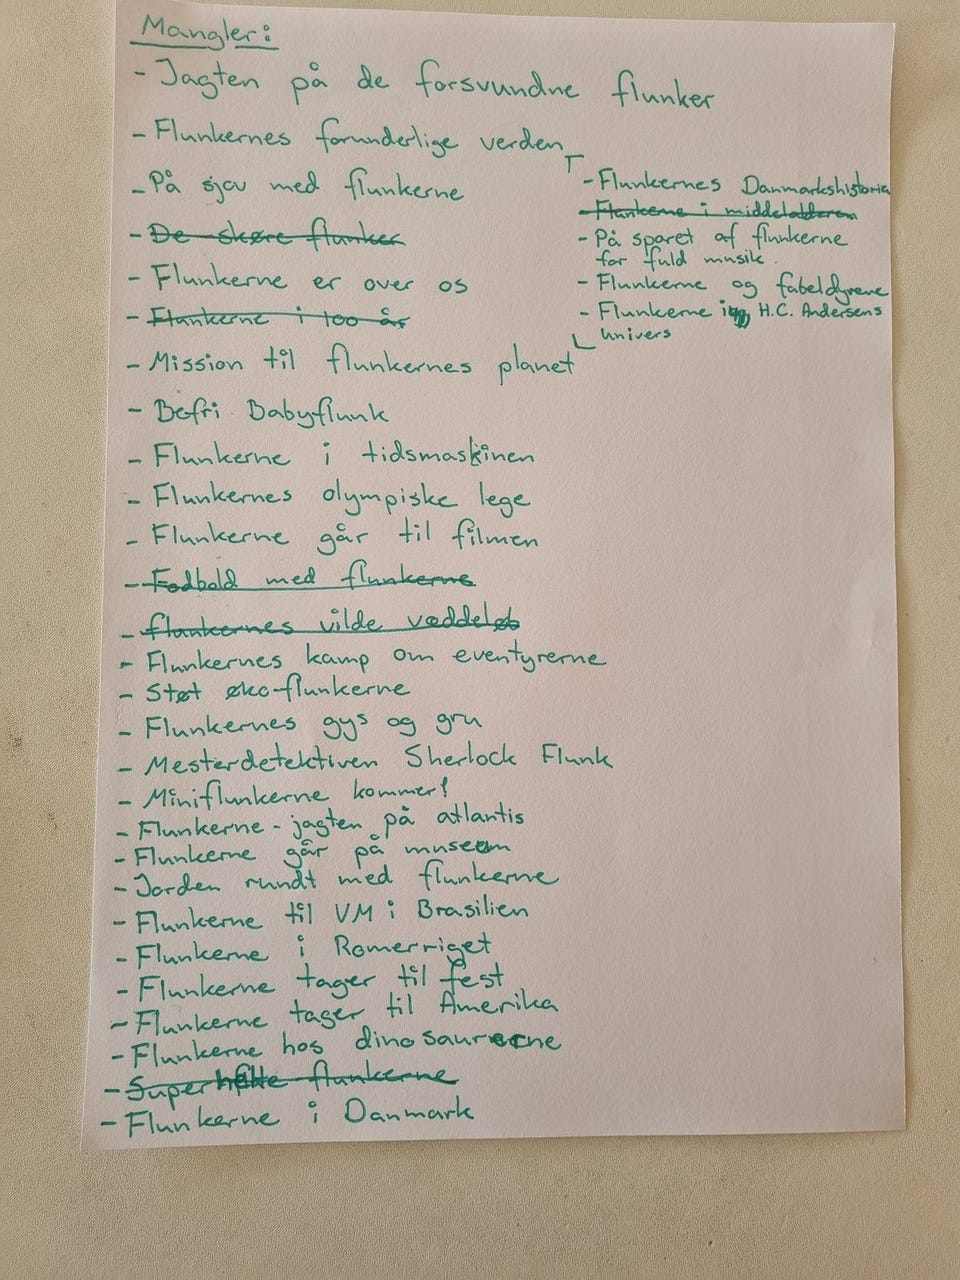 Mangler:
- Jagten på de forsvundne flunker
- Flunkernes forunderlige verden
- På sjov med flunkerne
- De skøre flunker
- Flunkerne er over os
- Flunkerne i 100 år
- Mission til flunkernes planet
- Befri Babyflunk
- Flunkerne i tidsmaskinen
- Flunkernes olympiske lege
- Flunkerne går til filmen
- Fodbold med flunkerne
- flunkernes vilde væddeløb
- Flunkernes kamp om eventyrerne
- Støt øko-flunkerne
- Flunkernes gys og gru
- Mesterdetektiven Sherlock Flunk
- Miniflunkerne kommer!
- Flunkerne - jagten på atlantis
- Flunkerne går på museum
- Jorden rundt med flunkerne
- Flunkerne til VM i Brasilien
- Flunkerne i Romerriget
- Flunkerne tager til fest
- Flunkerne tager til Amerika
- Flunkerne hos dinosaurerne
- Superhelte flunkerne
- Flunkerne i Danmark
- Flunkernes Danmarkshistorie
- Flunkerne i middelalderen
- På sporet af flunkerne
for fuld musik.
- Flunkerne og fabeldyrene
- Flunkerne i H.C. Andersens
univers